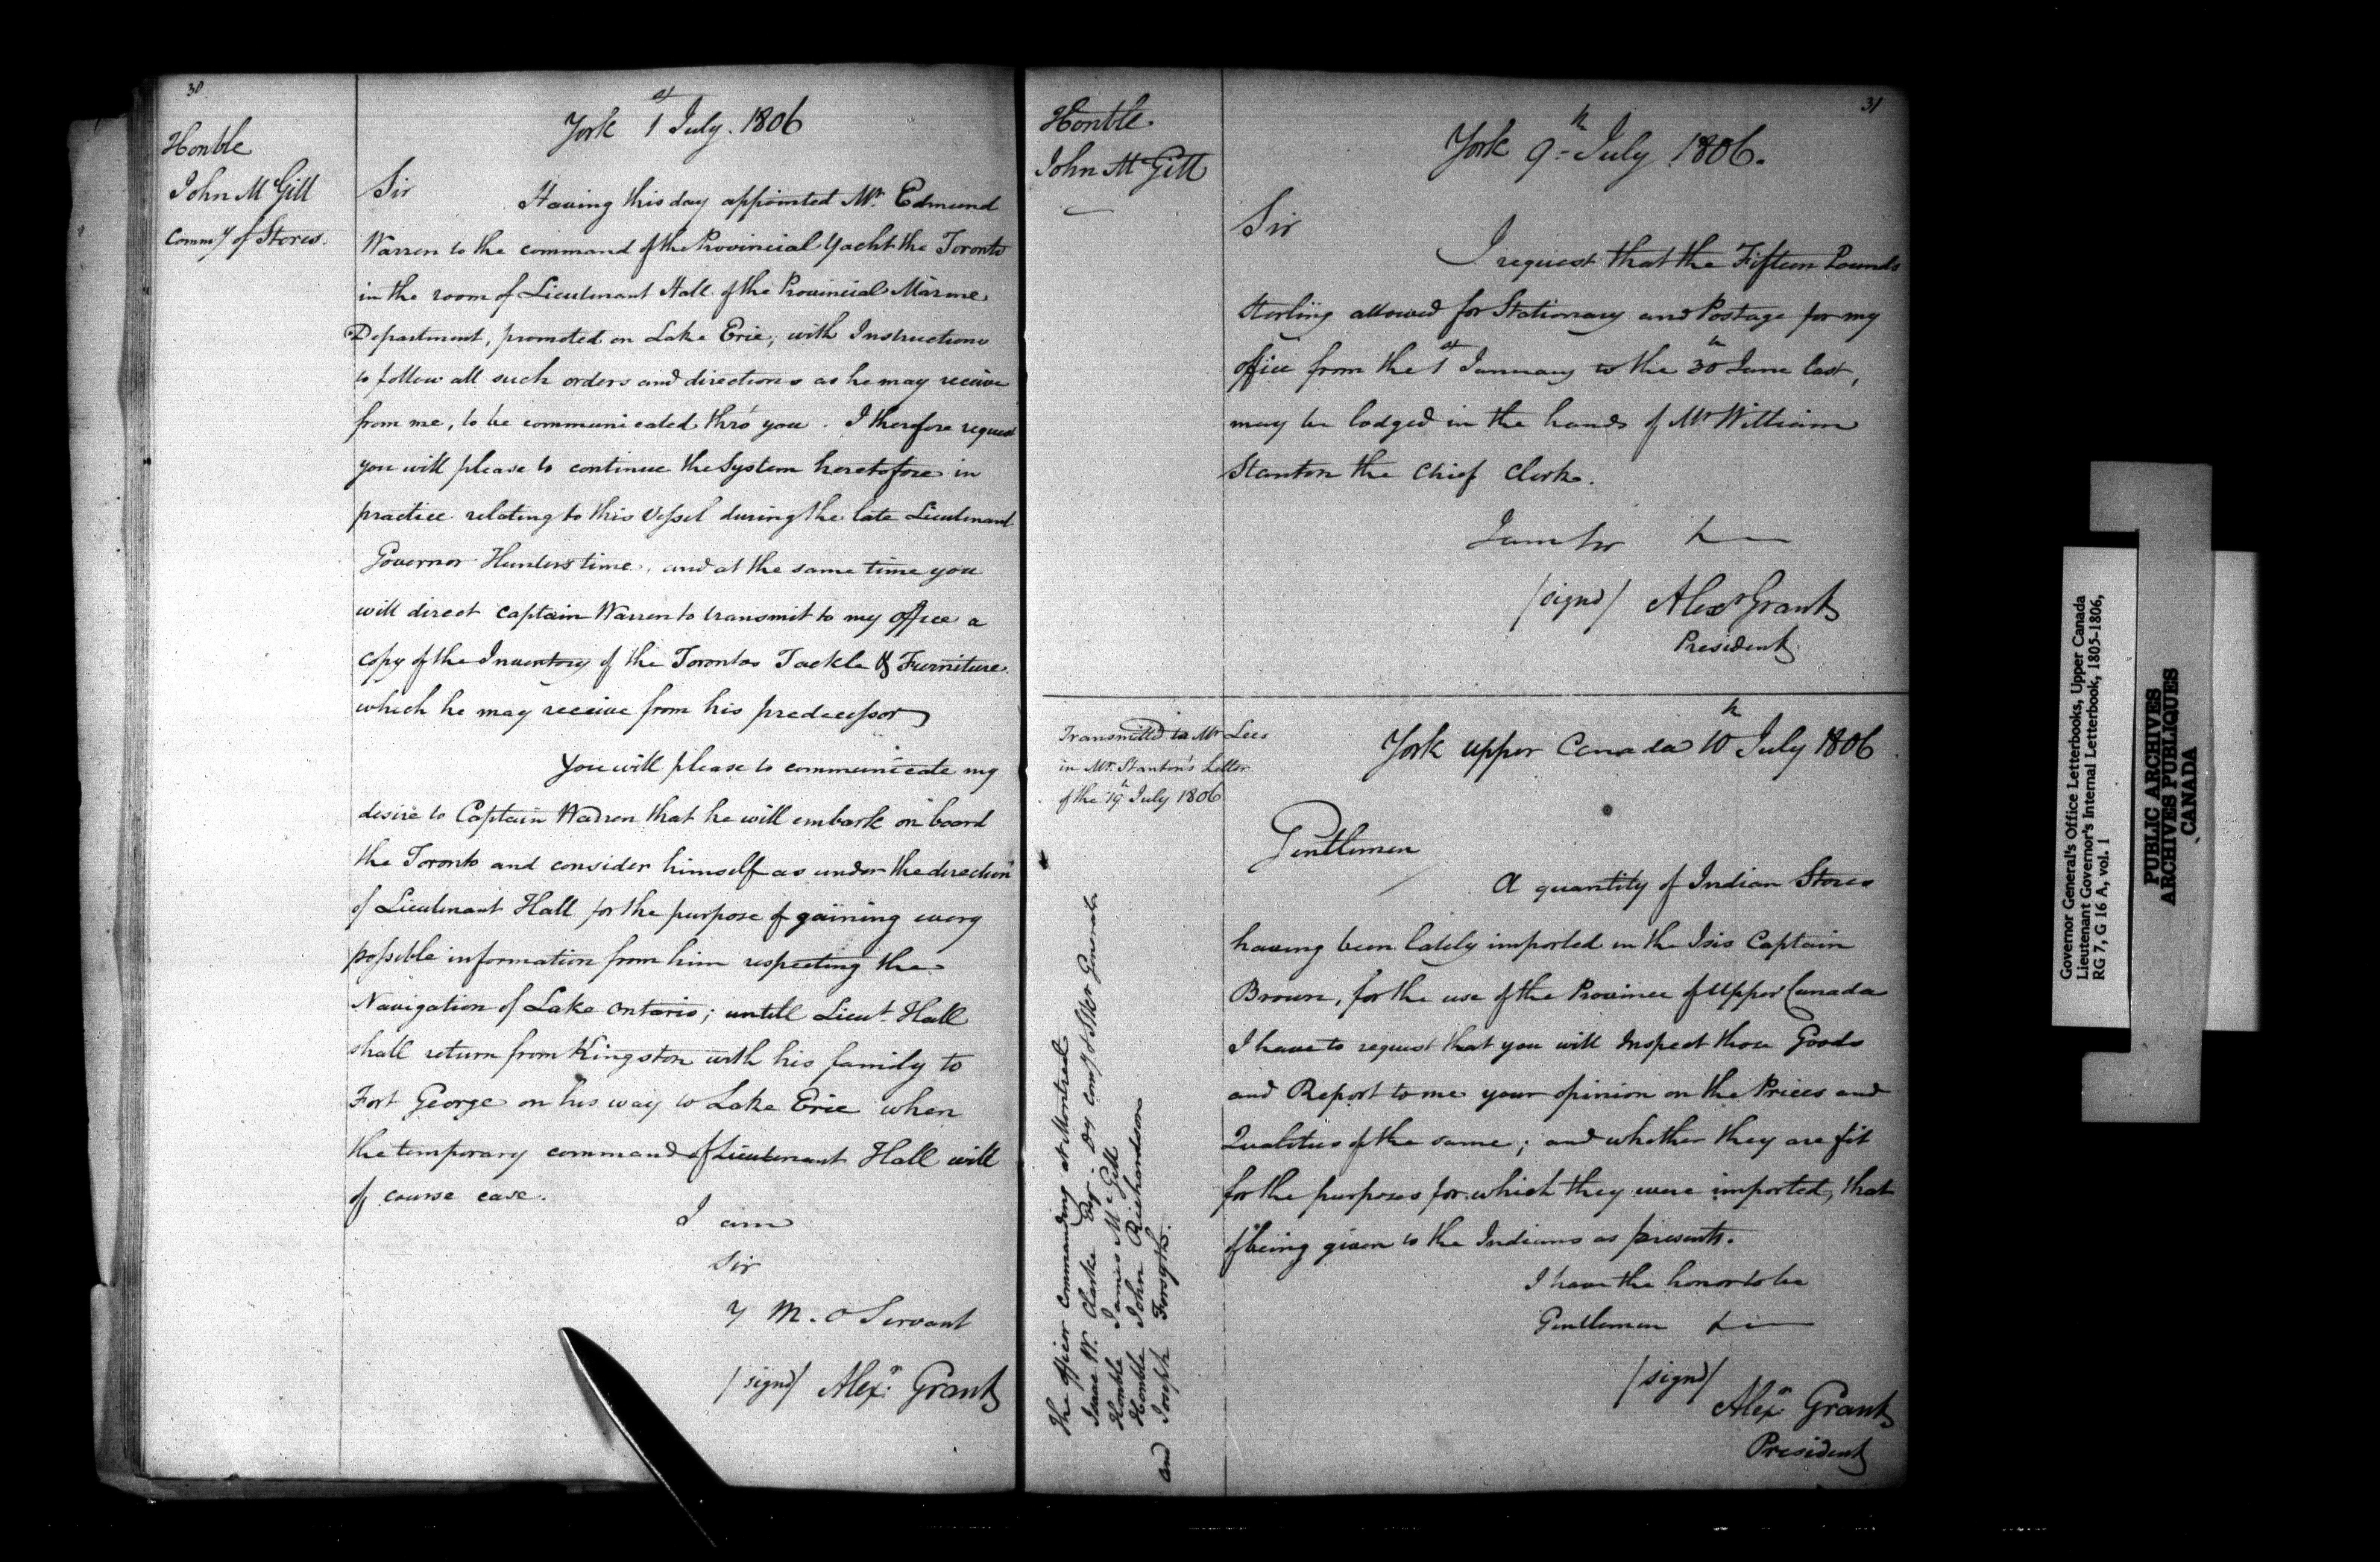 30
Honble
John McGill
Commy of Stores.
York 1st July. 1806
Sir Having this day appointed Mr. Edmund
Warren to the command of the Provincial Yacht the Toronto
in the room of Lieutenant Hall of the Provincial Marine
Department, promoted on Lake Erie, with Instructions
to follow all such orders and directions as he may receive
from me, to be communicated thro' you. I therefore request
you will please to continue the System heretofore in
practice relating to this Vessel during the late Lieutenant
Governor Hunters time, and at the same time you
will direct Captain Warren to transmit to my office a
copy of the Inventory of the Torontos Tackle & Furniture
which he may receive from his predecessor
You will please to communicate my
desire to Captain Warren that he will embark on board
the Toronto and consider himself as under the direction
of Lieutenant Hall for the purpose of gaining every
possible information from him respecting the
Navigation of Lake Ontario; untill Lieut. Hall
shall return from Kingston with his family to
Fort George on his way to Lake Erie when
the temporary command of Lieutenant Hall will
of course case.
I am
Sir
Y M. O Servant
/signd/ Alexr. Grant
31
Honble
John McGill
York 9th July 1806.
Sir
I request that the Fifteen Pounds
Sterling allowed for Stationary and Postage for my
office from the 1st January to the 30th June last,
may be lodged in the hands of Mr William
Stanton the Chief Clerk.
I am Sir
/signd/ Alexr Grant
President
Transmitted to Mr Lees
in Mr. Stanton's Letter
of the 19th July 1806
York upper Canada 10th July 1806
Gentlemen
A quantity of Indian Stores
having been lately imported in the Isis Captain
Brown, for the use of the Province of Upper Canada
I have to request that you will Inspect those Goods
and Report to me your opinion on the Prices and
Qualities of the same; and whether they are fit
for the purposes for which they were imported, that
of being given to the Indians as presents.
I have the honor to be
Gentlemen
/signd/
Alexr. Grant
President
The officer Commanding at Montreal
Isaac W. Clarke Esq. Dy Comy & Str General
Honble James McGill
Honble John Richardson
and Joseph Forsyth.
Governor General's Office Letterbooks, Upper Canada
Lieutenant Governor's Internal Letterbook, 1805-1806,
RG 7, G 16 A, vol. 1
PUBLIC ARCHIVES
ARCHIVES PUBLIQUES
CANADA